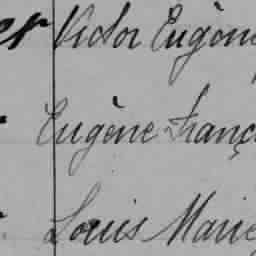 Victor Eugène
Eugène Franç
Louis Marie